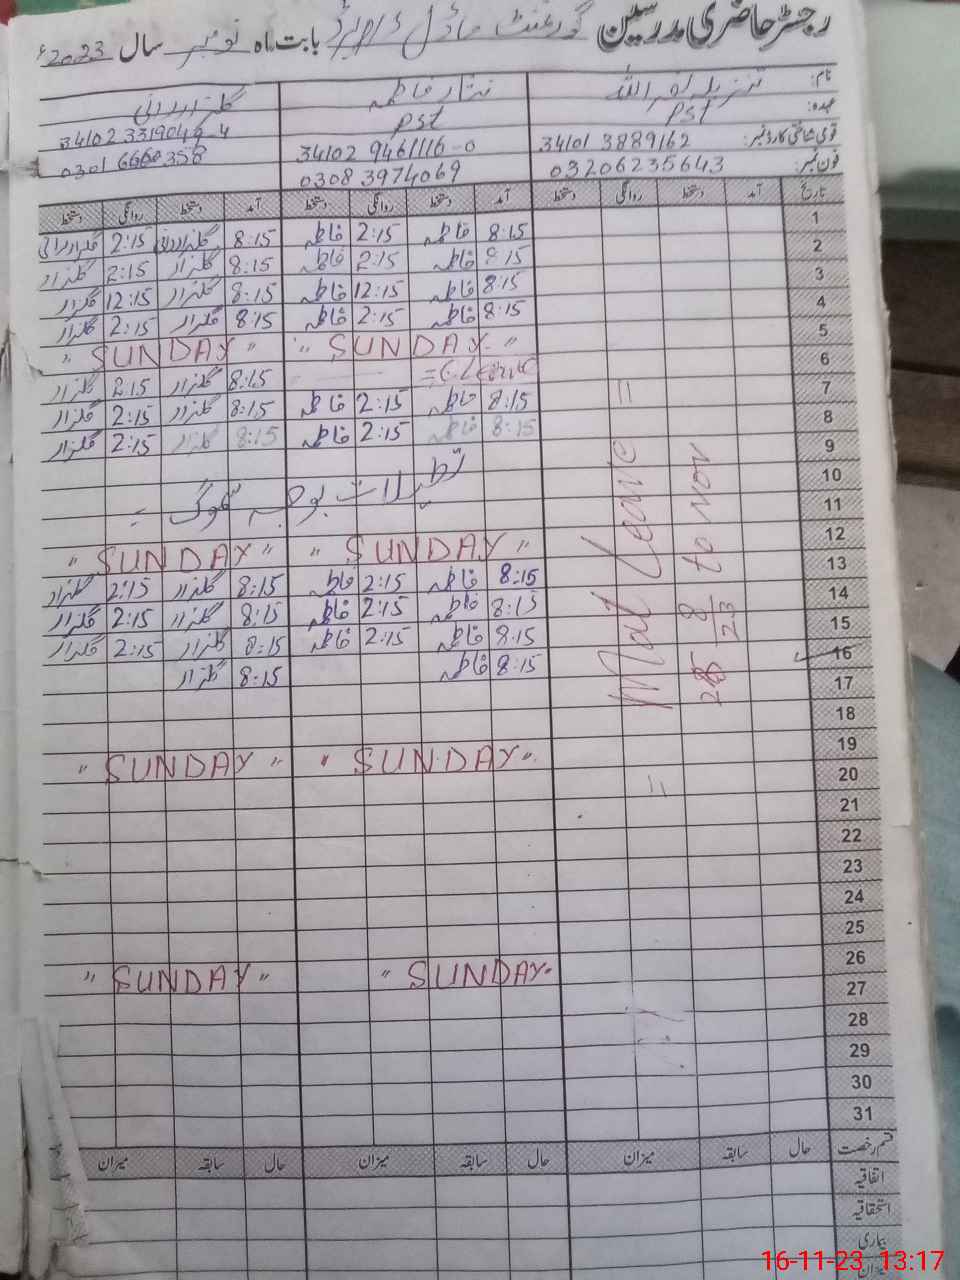 رجسٹر حاضری مدرسین گورنمنٹ ماڈل بابت ماہ نومبر سال 2023ء
نام: تنزیلہ نصر اللہ نثار فاطمہ گلزار
عہدہ: PST PST
قومی شناختی کارڈ نمبر: 34101 3889162 34102 9461116-0 34102 3319049-4
فون نمبر: 03206235643 0308 3974069 0301 6660358
تاریخ آمد دستخط روانگی دستخط آمد دستخط روانگی دستخط آمد دستخط روانگی دستخط
1 8:15 فاطمہ 2:15 فاطمہ 8:15 2:15
2 8:15 فاطمہ 2:15 فاطمہ 8:15 گلزار 2:15 گلزار
3 8:15 فاطمہ 12:15 فاطمہ 8:15 گلزار 12:15 گلزار
4 8:15 فاطمہ 2:15 فاطمہ 8:15 گلزار 2:15 گلزار
5 " SUNDAY " " SUNDAY "
6 = C Leave 8:15 گلزار 2:15 گلزار
7 8:15 فاطمہ 2:15 فاطمہ 8:15 گلزار 2:15 گلزار
8 8:15 فاطمہ 2:15 فاطمہ 8:15 گلزار 2:15 گلزار
9
10 تعطیلات بوجہ سموگ =
11
12 " SUNDAY " " SUNDAY "
13 8:15 فاطمہ 2:15 فاطمہ 8:15 گلزار 2:15 گلزار
14 8:15 فاطمہ 2:15 فاطمہ 8:15 گلزار 2:15 گلزار
15 8:15 فاطمہ 2:15 فاطمہ 8:15 گلزار 2:15 گلزار
16 8:15 فاطمہ 8:15 گلزار
17
18
19 " SUNDAY " " SUNDAY "
20
21
22
23
24
25
26 " SUNDAY " " SUNDAY "
27
28
29
30
31
= Mat Leave =
8/23 to nov
قسم رخصت حال سابقہ میزان حال سابقہ میزان حال سابقہ میزان
اتفاقیہ
استحقاقیہ
بیماری
میزان
16-11-23 13:17